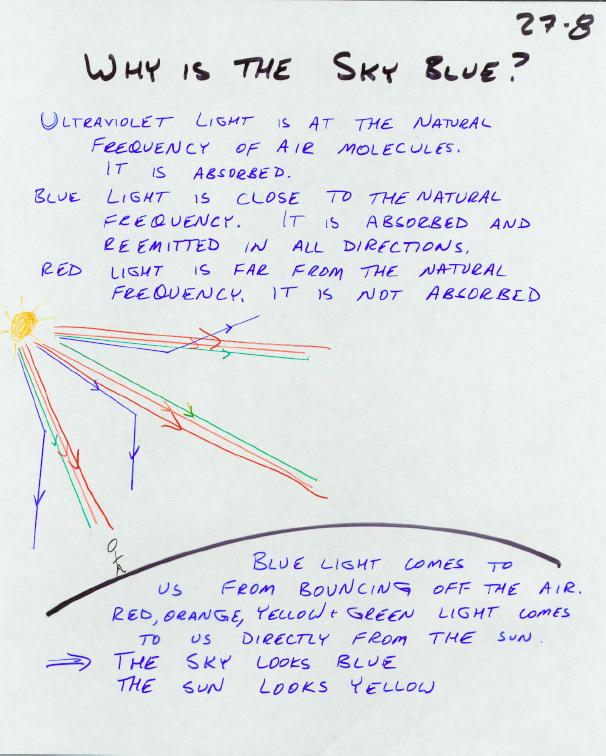 27-8
WHY IS THE SKY BLUE?
ULTRAVIOLET LIGHT IS AT THE NATURAL
FREQUENCY OF AIR MOLECULES.
IT IS ABSORBED.
BLUE LIGHT IS CLOSE TO THE NATURAL
FREQUENCY. IT IS ABSORBED AND
REEMITTED IN ALL DIRECTIONS.
RED LIGHT IS FAR FROM THE NATURAL
FREQUENCY. IT IS NOT ABSORBED
BLUE LIGHT COMES TO
US FROM BOUNCING OFF THE AIR.
RED, ORANGE, YELLOW + GREEN LIGHT COMES
TO US DIRECTLY FROM THE SUN.
⇒ THE SKY LOOKS BLUE
THE SUN LOOKS YELLOW